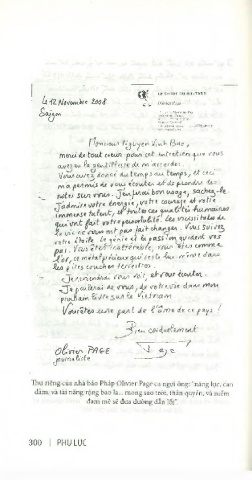 Le 12 Novembre 2008
Saigon
Monsieur Nguyen Vinh Bao,
merci de tout coeur pour cet entretien que vous
avez eu la gentillesse de m'accorder.
Vous avez donné du temps au temps, et ceci
m'a permis de vous écouter et de prendre des
notes sur vous. J'en ferai bon usage, sachez-le
J'admire votre énergie, votre courage et votre
immense talent, et toutes ces qualités humaines
qui ont fait votre personnalité. Les vicissitudes de
la vie ne vous ont pas fait changer. Vous suivez
votre étoile. Le génie et la passion guident vos
pas. Vous êtes inaltérable, vous êtes comme
l'or, ce métal précieux qui
les couches terrestres.
Je reviendrai vous voir, et vous écouter.
Je parlerai de vous, de votre vie dans mon
prochain livre sur le Vietnam
Vous êtes une part de l'âme de ce pays !
Bien cordialement
Olivier PAGE
journaliste
Thư riêng của nhà báo Pháp Olivier Page ca ngợi ông: "năng lực, can
đảm và tài năng rộng bao la... mong sao trời, thần quyền, và niềm
đam mê sẽ đưa đường dẫn lối".
300 | PHỤ LỤC